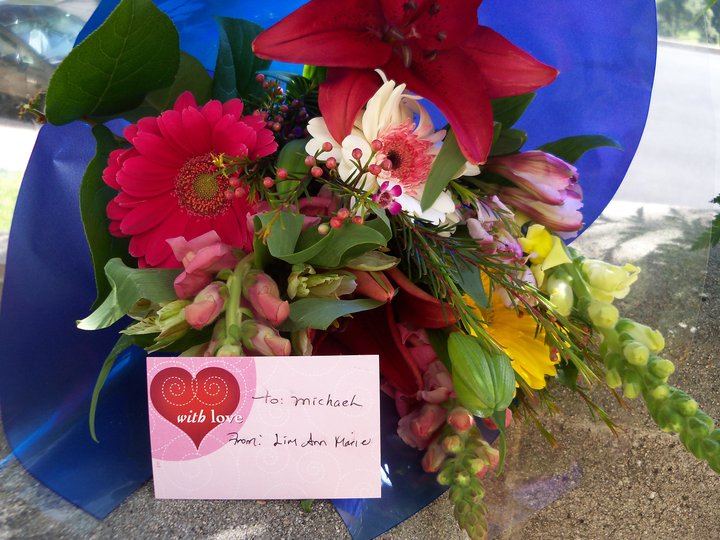 with love
to: michael
From: Lim Ann Marie